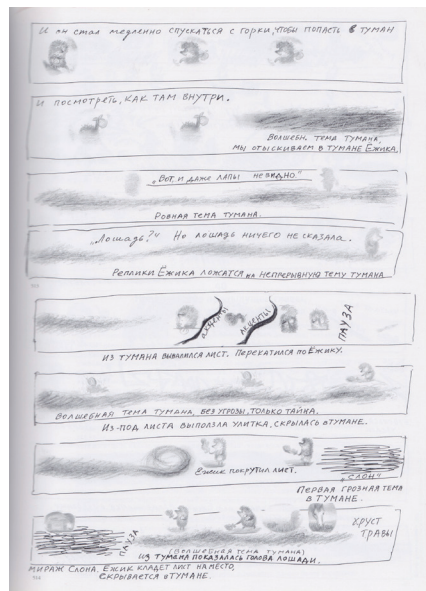 И он стал медленно спускаться с горки, чтобы попасть в туман
и посмотреть, как там внутри.
Волшебн. тема тумана,
мы отыскиваем в тумане Ёжика.
„Вот, и даже лапы не видно."
Ровная тема тумана.
„Лошадь?" Но лошадь ничего не сказала.
Реплики Ёжика ложатся на непрерывную тему тумана
акценты
акценты
пауза
Из тумана вывалился лист. Перекатился по Ёжику.
Волшебная тема тумана, без угрозы, только тайна.
Из-под листа выползла улитка, скрылась в тумане.
Ёжик покрутил лист.
„Слон"
Первая грозная тема
в тумане.
пауза
хруст
травы
(Волшебная тема тумана)
Из тумана показалась голова лошади.
Мираж слона. Ёжик кладет лист на место,
скрывается в тумане.